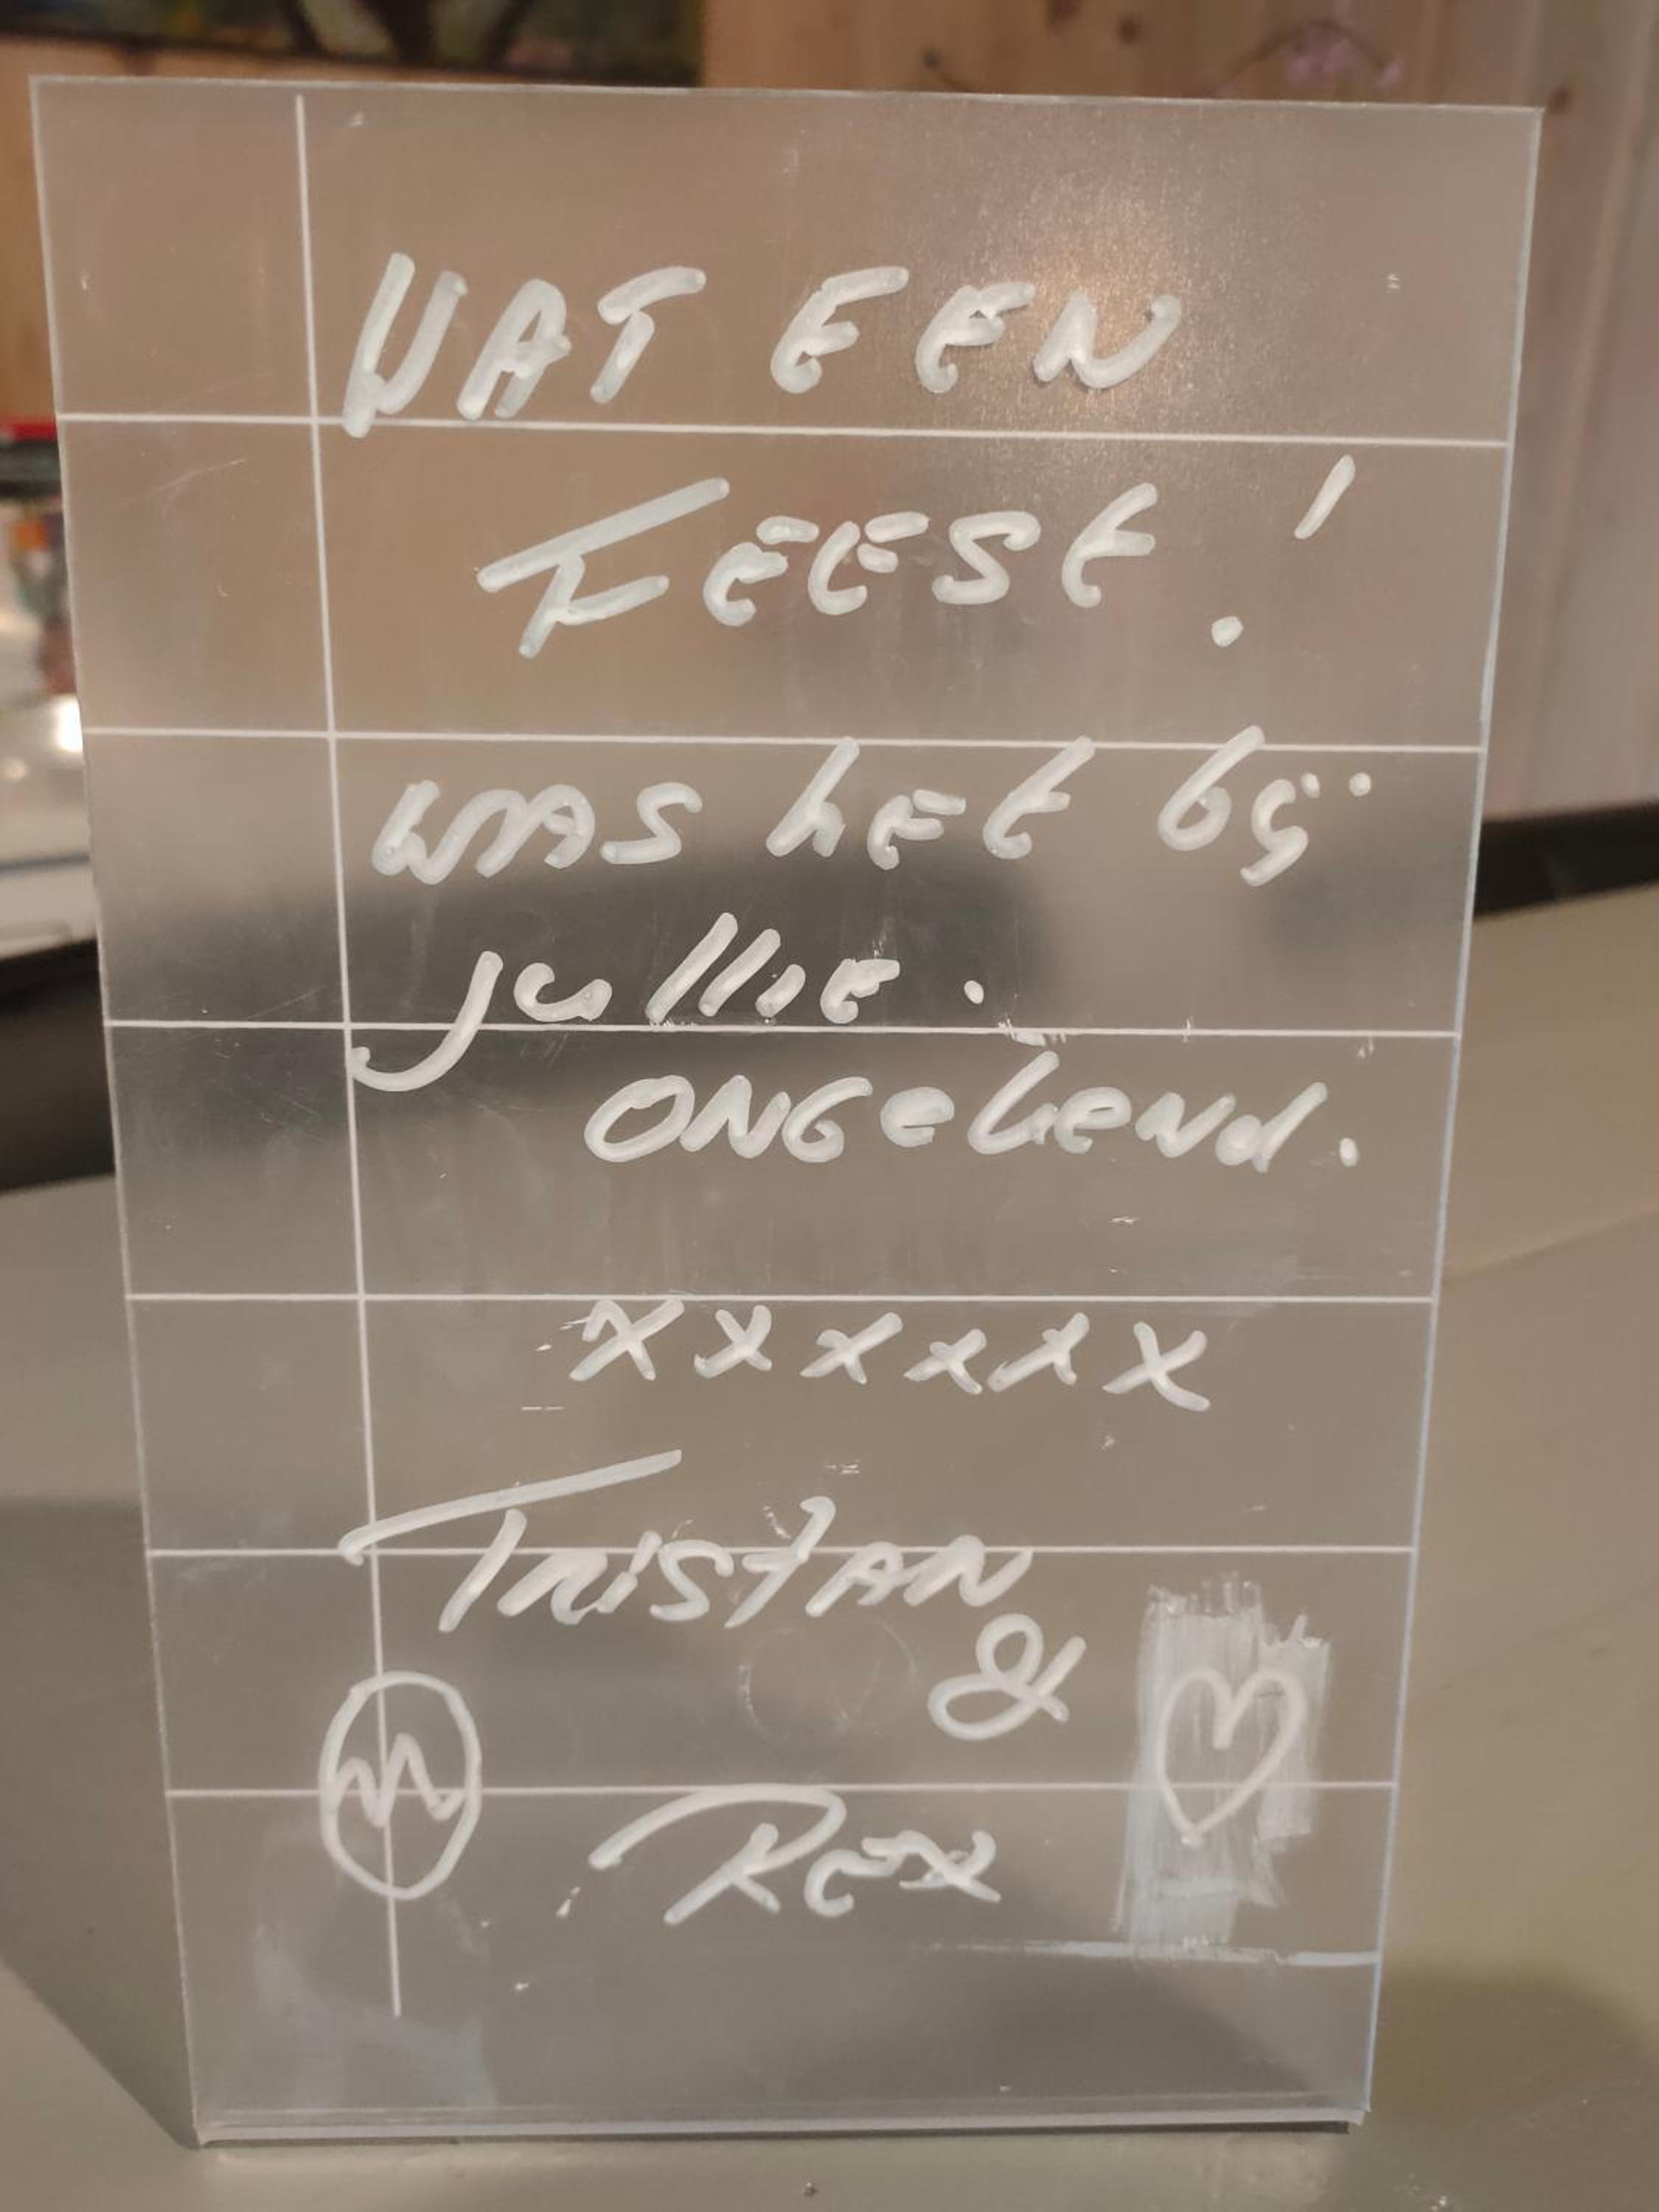 WAT EEN
FEEST!
WAS hEt bij
jullie.
ONGekend.
xxxxxx
TRiStAN
&
REX